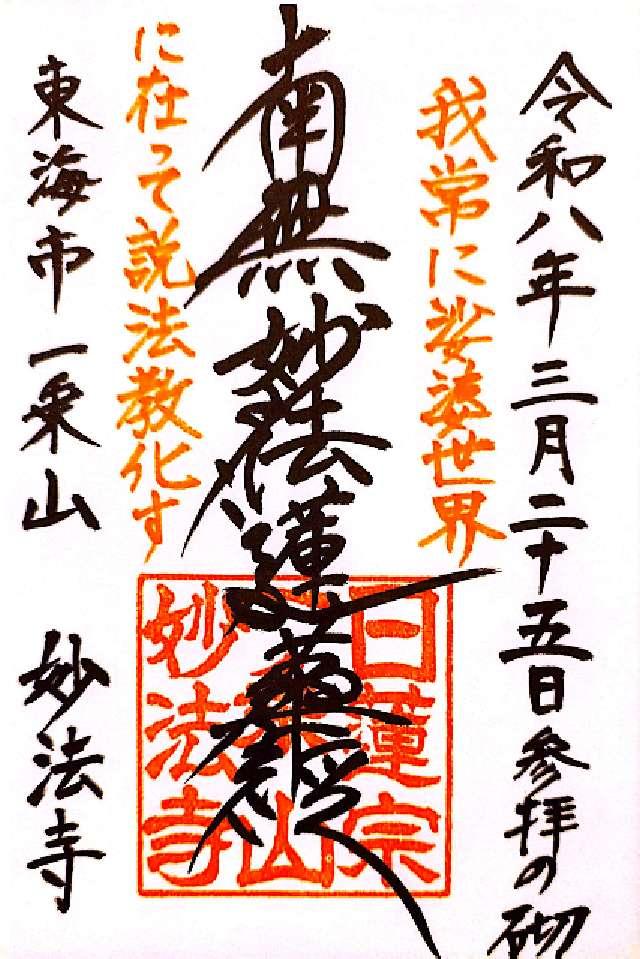 令和八年三月二十五日参拝の砌
我常に娑婆世界
南無妙法蓮華経
に在って説法教化す
東海市 一乗山 妙法寺
日蓮宗
一乗山
妙法寺